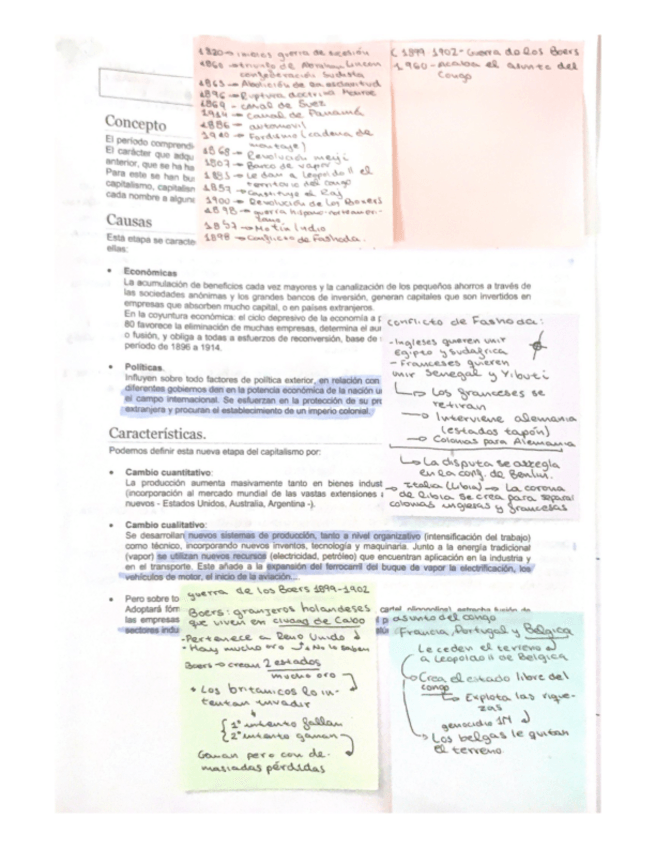 1820→ guerra de secesión
1860 →triunfo de Abraham Lincon
confederación sudista
1863→ Abolición de la esclavitud
1896→Ruptura doctrina Monroe
1869 - canal de Suez
1914→ canal de Panamá
1886→ automovil
Fordismo (cadena de
montaje)
1868→ Revolución meiji
1807→ Barco de vapor
1885→ Le dan a Leopoldo II el
territorio del congo
1857→ el Raj
1900→ Revolución de los Boxers
1898→guerra hispano-norteameri-
cana
1857→Motín indio
1898→Conflicto de Fashoda.
1899-1902-Guerra de los Boers
1960-Acaba el asunto del
Congo
Concepto
El periodo comprendi
El carácter que adqu
anterior, que se ha ha
Para este se han bu
capitalismo, capitalisn
cada nombre a alguna
Causas
Esta etapa se caracte
ellas:
• Económicas
La acumulación de beneficios cada vez mayores y la canalización de los pequeños ahorros a través de
las sociedades anónimas y los grandes bancos de inversión, generan capitales que son invertidos en
empresas que absorben mucho capital, o en países extranjeros.
En la coyuntura económica: el ciclo depresivo de la economía a p
80 favorece la eliminación de muchas empresas, determina el aum
o fusión, y obliga a todas a esfuerzos de reconversión, base de
periodo de 1896 a 1914.
• Políticas.
Influyen sobre todo factores de política exterior, en relación con
diferentes gobiernos den en la potencia económica de la nación u
el campo internacional. Se esfuerzan en la protección de su pr
extranjera y procuran el establecimiento de un imperio colonial.
conflicto de Fashoda:
-Ingleses quieren unir
Egipto y Sudafrica
- Franceses quieren
unir Senegal y Yibuti
→ Los franceses se
retiran
→ Interviene alemania
(estados tapón)
→ Colonias para Alemania
→La disputa se arregla
en la conf. de Berlín.
→ Italia (Libia) → La corona
de Libia se crea para separar
colonias inglesas y francesas
Características.
Podemos definir esta nueva etapa del capitalismo por:
• Cambio cuantitativo:
La producción aumenta masivamente tanto en bienes indust
(incorporación al mercado mundial de las vastas extensiones
nuevos - Estados Unidos, Australia, Argentina -).
• Cambio cualitativo:
Se desarrollan nuevos sistemas de producción, tanto a nivel organizativo (intensificación del trabajo)
como técnico, incorporando nuevos inventos, tecnología y maquinaria. Junto a la energía tradicional
(vapor) se utilizan nuevos recursos (electricidad, petróleo) que encuentran aplicación en la industria y
en el transporte. Este añade a la expansión del ferrocarril del buque de vapor la electrificación, los
vehículos de motor, el inicio de la aviación...
• Pero sobre to
Adoptará fórm
las empresas
sectores indu
guerra de los Boers 1899-1902
Boers: granjeros holandeses
que viven en ciudad de Cabo
-Pertenece a Reino Unido
-Hay mucho oro → No lo saben
Boers→ crean 2 estados
mucho oro
• Los británicos lo in-
tentan invadir
1º intento fallan
2º intento ganan
Ganan pero con de-
masiadas pérdidas
asunto del congo
Francia, Portugal y Belgica
Le ceden el terreno
a Leopoldo II de Belgica
Crea el estado libre del
congo
→ Explota las rique-
zas
genocidio 1M
→ Los belgas le quitan
el terreno.